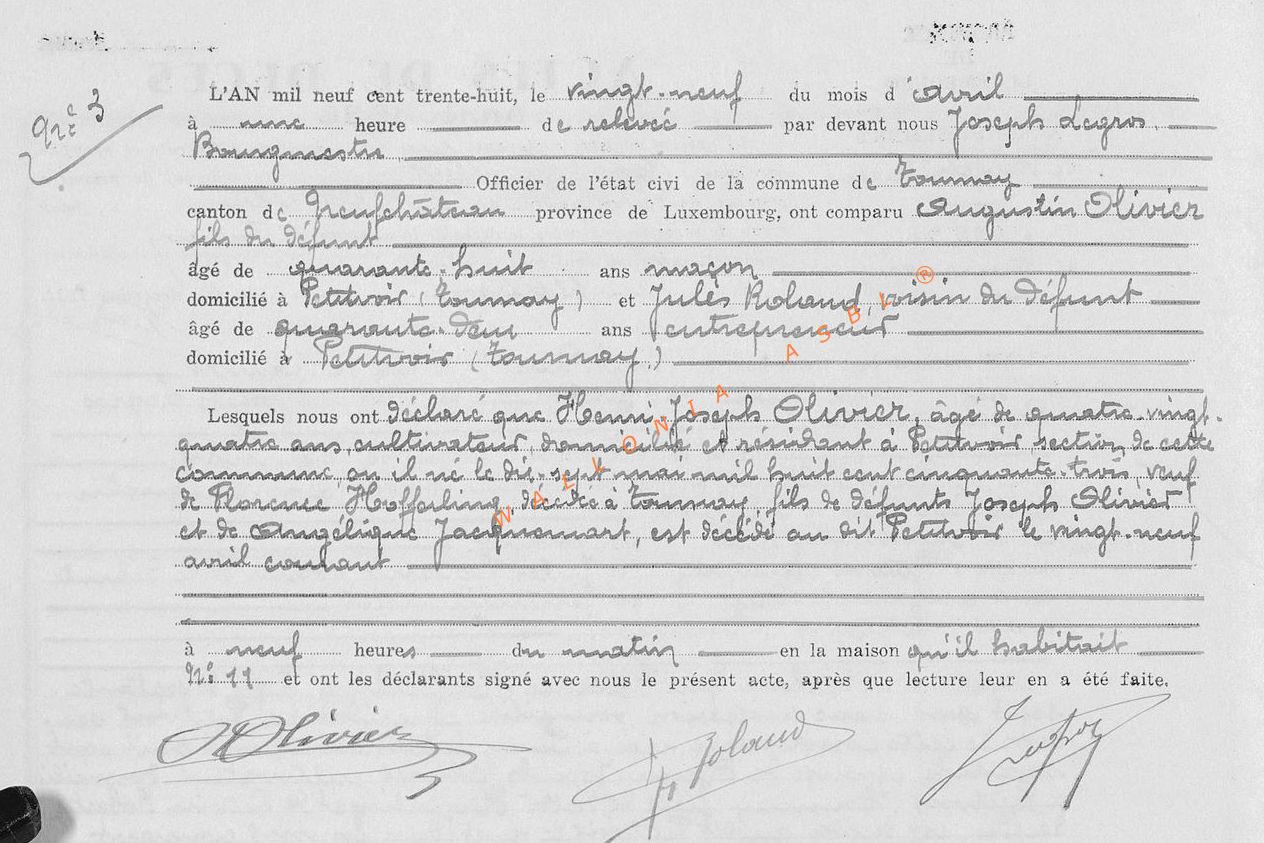 Nº 3
L'AN mil neuf cent trente-huit, le vingt-neuf du mois d'avril
à une heure de relevée par devant nous Joseph Legros
Bourgmestre
Officier de l'état civi de la commune de Tournay
canton de Neufchâteau province de Luxembourg, ont comparu Augustin Olivier
fils du défunt
âgé de quarante-huit ans maçon
domicilié à Petitvoir (Tournay) et Jules Roland, voisin du défunt
âgé de quarante-deux ans entrepreneur
domicilié à Petitvoir (Tournay)
Lesquels nous ont déclaré que Henri-Joseph Olivier, âgé de quatre-vingt-
quatre ans, cultivateur, domicilié et résidant à Petitvoir, section de cette
commune, où il né le dix-sept mai mil huit cent cinquante-trois, veuf
de Florence Hofferling, décédée à Tournay, fils de défunts Joseph Olivier
et de Angélique Jacquemart, est décédé au dit Petitvoir le vingt-neuf
avril courant
à neuf heures du matin en la maison qu'il habitait
Nº 11 et ont les déclarants signé avec nous le présent acte, après que lecture leur en a été faite.
AOlivier Roland
WALLONIA ASBL ®